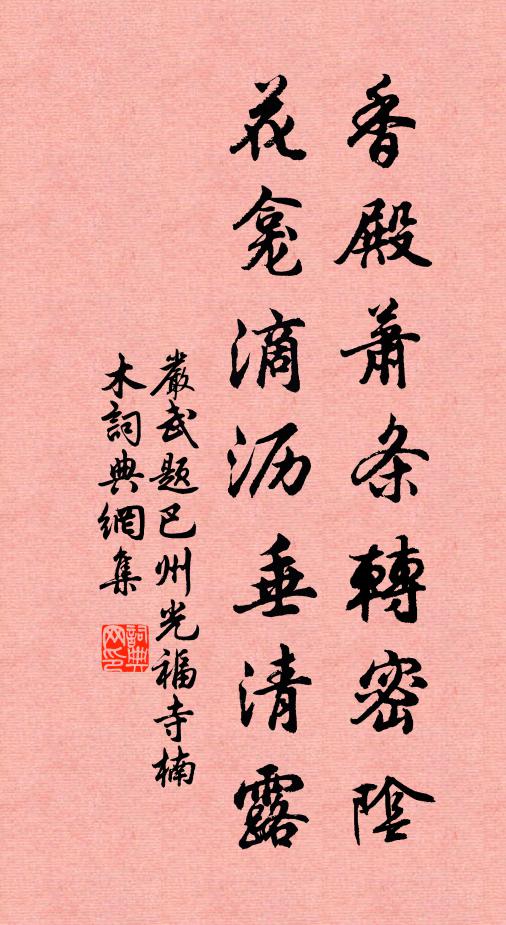 香殿萧条轉密陰
花龛滴沥垂清露
嚴武题巴州光福寺楠
木詞典網集
詞典网印